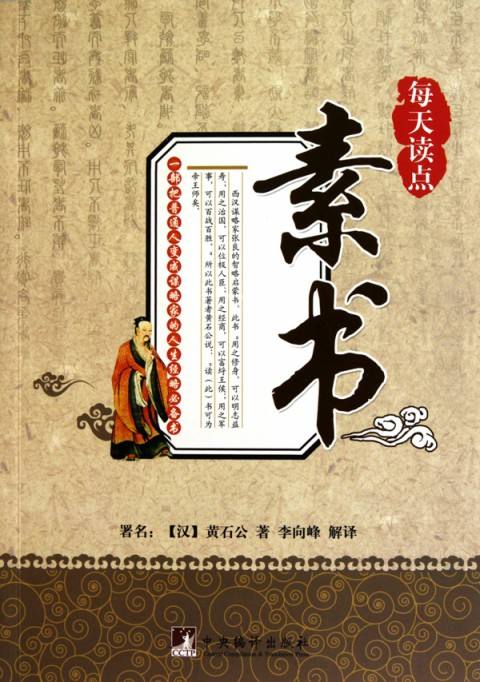 每天读点
素书
西汉谋略家张良的智略启蒙书。此书“用之修身，可以明志益
寿，用之治国，可以位极人臣；用之经商，可以富埒王侯，用之军
事，可以百战百胜。”所以此书著者黄石公说：“读（此）书可为
帝王师矣。
一部把普通人变成谋略家的人生经略必备书
署名：【汉】黄石公 著 李向峰 解译
中央编译出版社
Central Compilation & Translation Press
CCTP